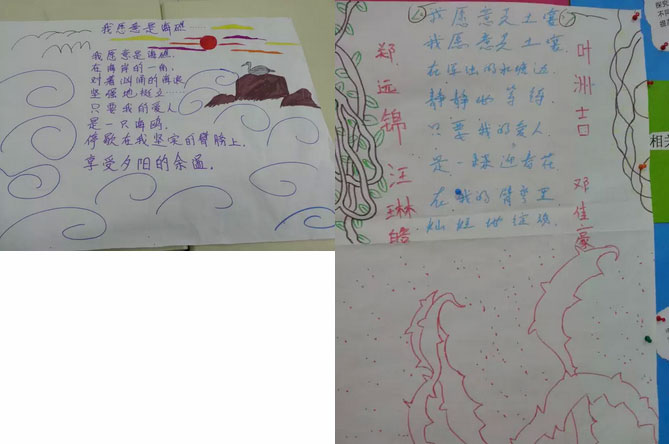 我愿意是海礁……
我愿意是海礁.
在海岸的一角,
对着汹涌的海浪
坚强地挺立……
只要我的爱人
是一只海鸥,
停歇在我坚实的臂膀上,
享受夕阳的余温.
我愿意是土壤
我愿意是土壤.
静静地等待.
只要我的爱人
是一株迎春花
在我的臂弯里
灿烂地绽放.
郑远锦
汪琳皓
叶洲吉
邓佳豪
相关